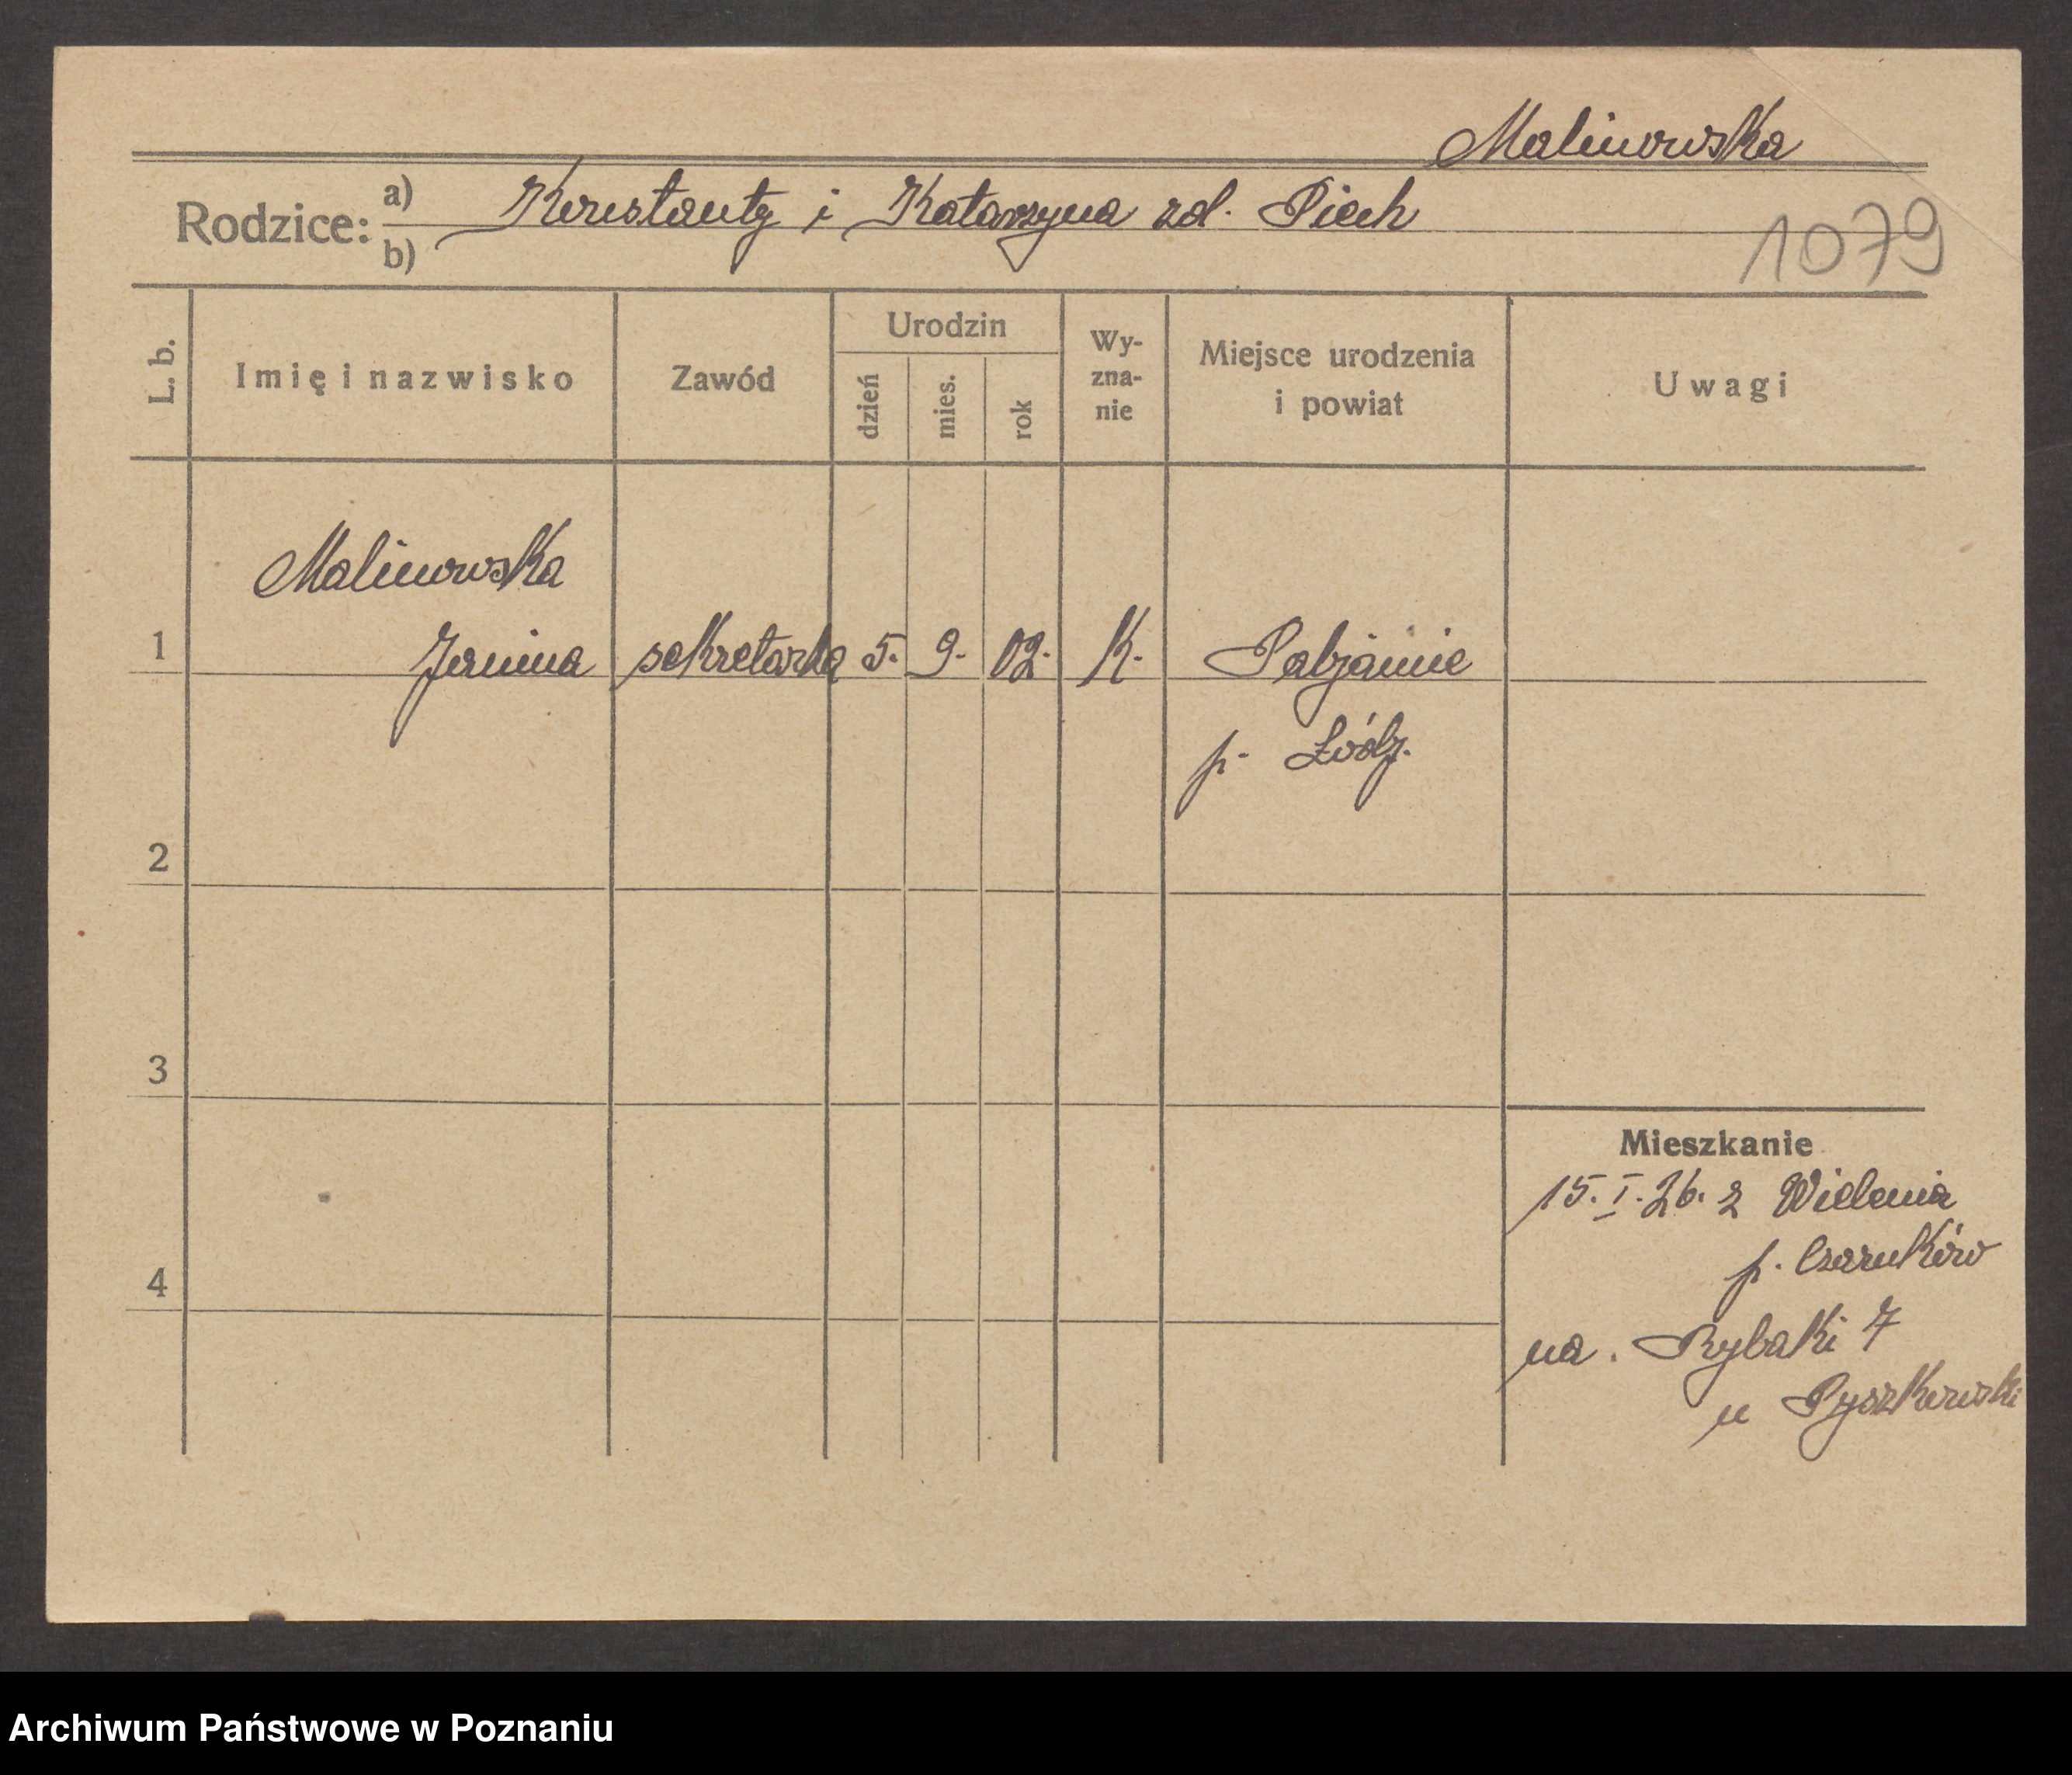 Malinowska
Rodzice: a) Konstanty i Katarzyna zd. Piech
b)
1079
L. b.
Imię i nazwisko
Zawód
Urodzin
dzień
mies.
rok
Wy-
zna-
nie
Miejsce urodzenia
i powiat
Uwagi
Malinowska
1 Janina sekretarka 5. 9. 02. K. Pabjanice
p. Łódź.
2
3
Mieszkanie
15. I. 26. z Wielenia
p. Czarnków
4
na. Rybaki 7
u Pyszkowski
Archiwum Państwowe w Poznaniu